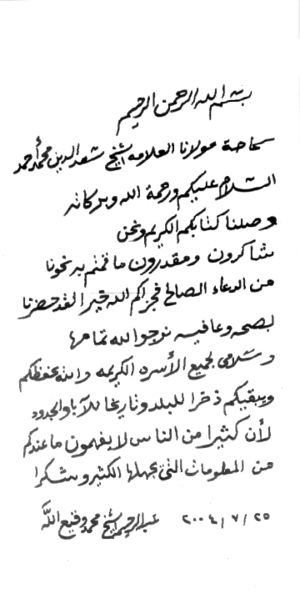 بسم الله الرحمن الرحيم
سماحة مولانا العلامه الشيخ سعد الدين محمد أحمد
السلام عليكم ورحمة الله وبركاته
وصلنا كتابكم الكريم ونحن
شاكرون ومقدرون ما قمتم به نحونا
من الدعاء الصالح فجزاكم الله خيرا لقد حضرنا
بصحه وعافيه نرجو الله تمامها
وسلامى لجميع الأسره الكريمه والله يحفظكم
ويبقيكم ذخرا للبلد وتاريخا للآباء والجدود
لأن كثيرا من الناس لا يفهمون ما عندكم
من المعلومات التى يجهلها الكثير وشكرا
٢٠٠٤/٧/٢٥ عبد الرحيم الشيخ محمد وقيع الله